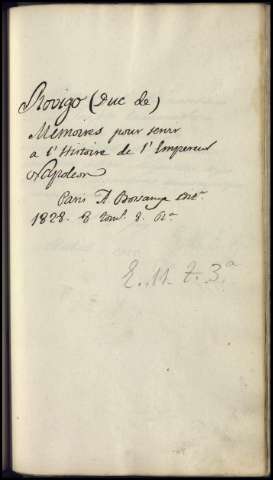 Rovigo (Duc de)
Mémoires pour servir
a l'Histoire de l'Empereur
Napoleon
Paris A. Bossange
1828. 8 tom.
E. 11. t. 3.a